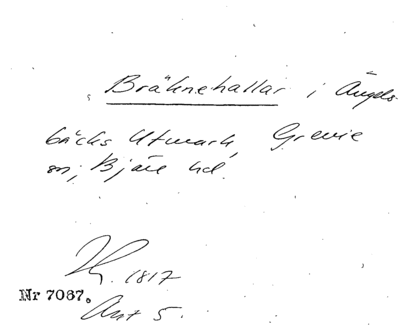 Bräknehallar i Ängels-
bäcks Utmark, Grevie
sn, Bjäre hd.
1817
Nr 7087.
Ant 5.